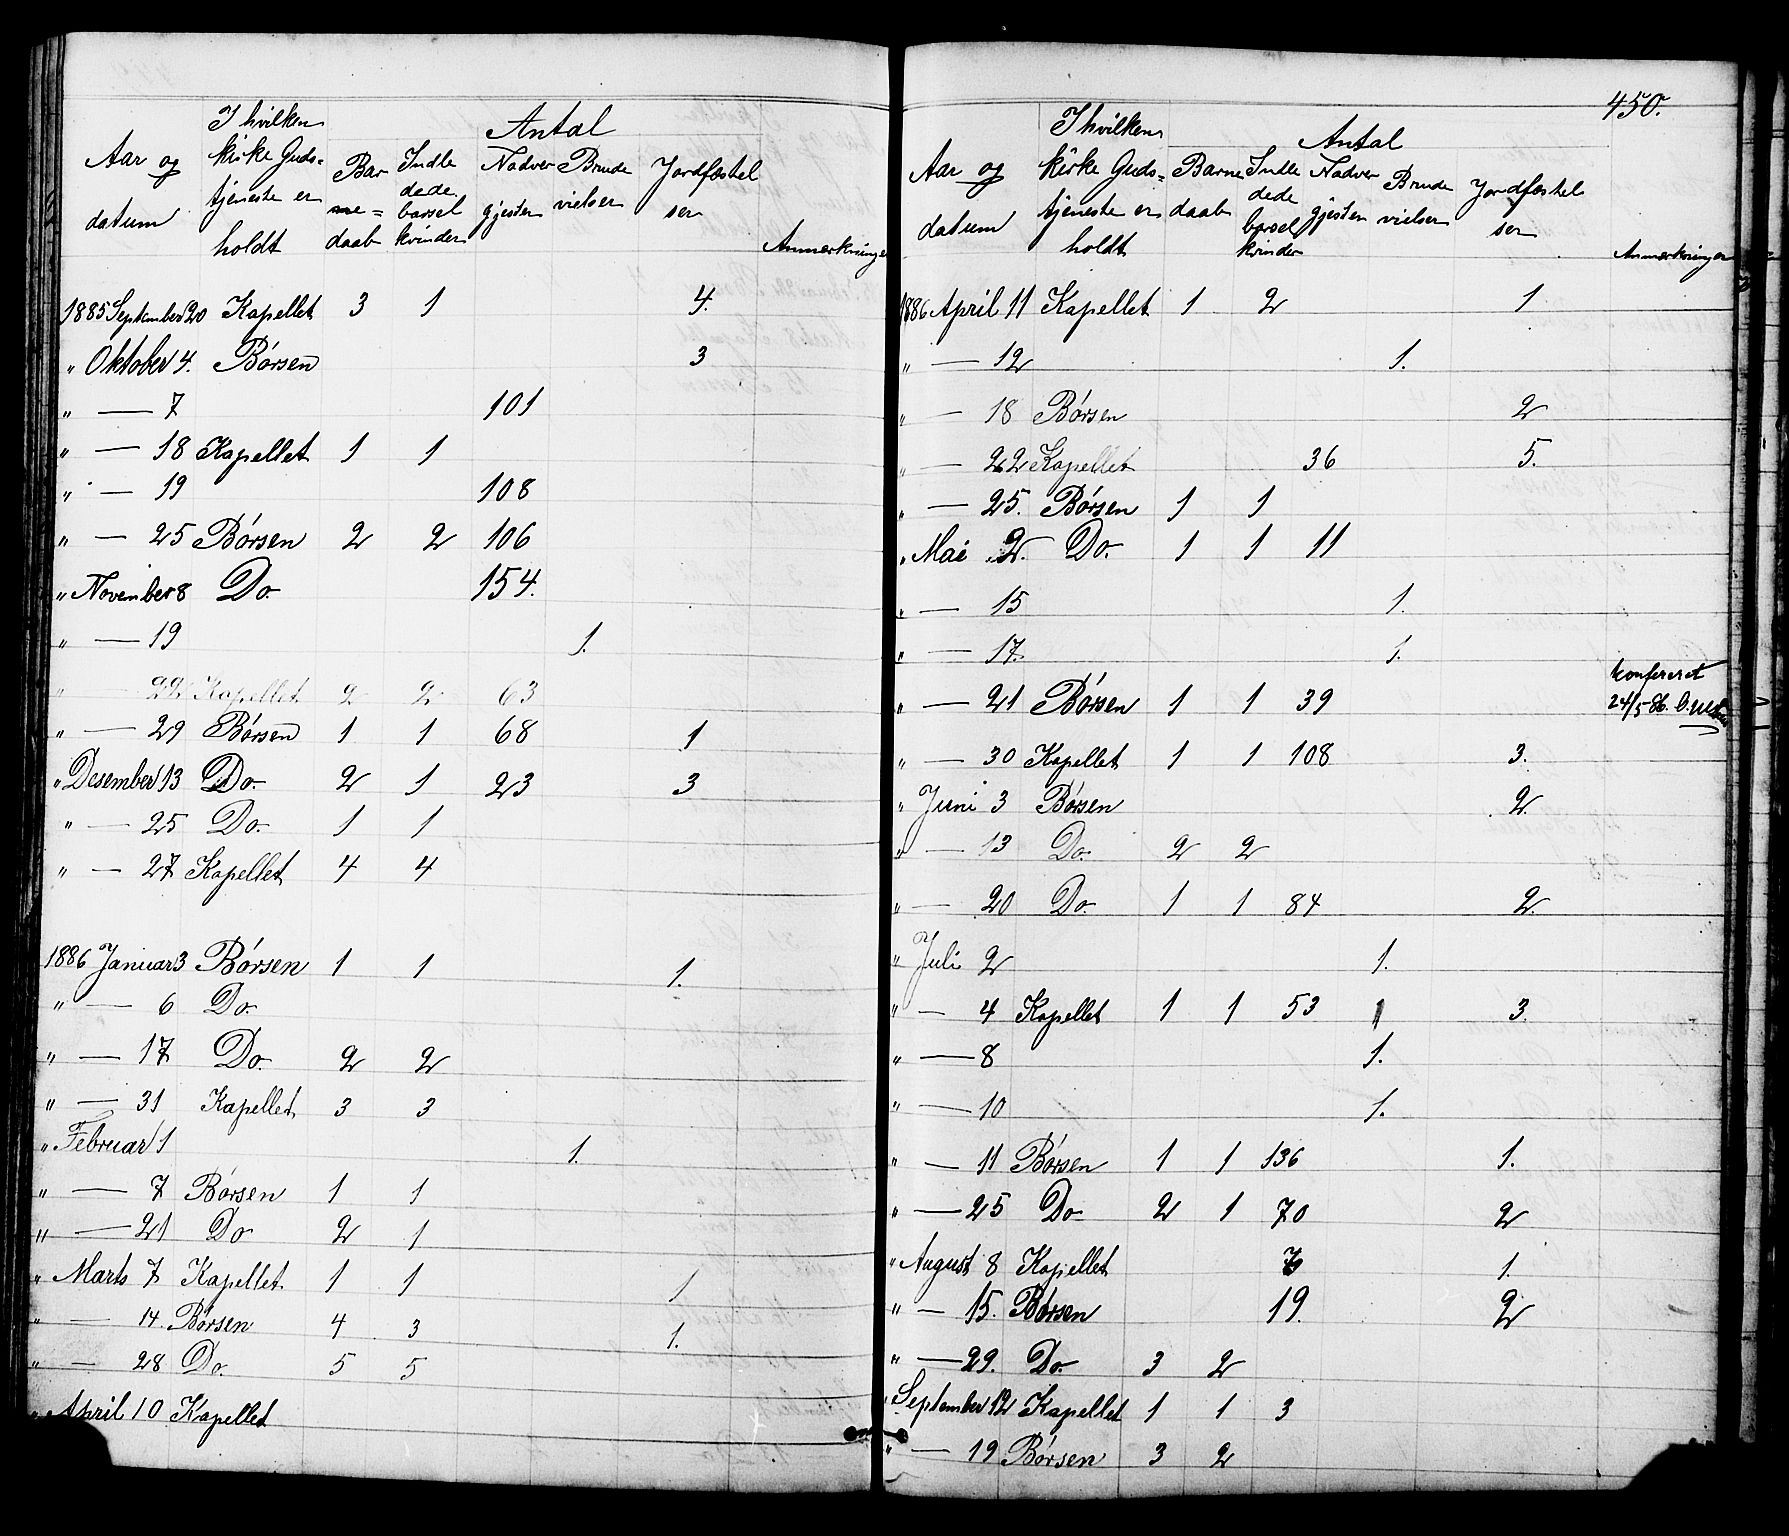 Aar og datum | I hvilken kirke Guds= tjeneste er holdt | Antal | Bar ne= daab | Indle dede barsel kvinder | Nadver gjester | Brude vielser | Jordfæstel ser | Anmærkninger
1885 September 20 Kapellet 3 1 4.
" Oktober 4. Børsen 3
" — 7 101
" — 18 Kapellet 1 1
" — 19 108
" — 25 Børsen 2 2 106
" November 8 Do. 154.
" — 19 1.
" — 22 Kapellet 2 2 63
" — 29 Børsen 1 1 68 1
" Desember 13 Do. 2 1 23 3
" — 25 Do. 1 1
" — 27 Kapellet 4 4
1886 Januar 3 Børsen 1 1 1.
" — 6 Do.
" — 17 Do. 2 2
" — 31 Kapellet 3 3
" Februar 1 1.
" — 7 Børsen 1 1
" — 21 Do 2 1
" Marts 7 Kapellet 1 1 1
" — 14. Børsen 4 3 1.
" — 28 Do. 5 5
" April 10 Kapellet
450.
Aar og datum | I hvilken kirke Guds= tjeneste er holdt | Antal | Barne daab | Indle dede barsel kvinder | Nadver gjester | Brude vielser | Jordfæstel ser | Anmærkninger
1886 April 11 Kapellet 1 2 1
" — 12 1.
" — 18 Børsen 2
" — 22 Kapellet 36 5.
" — 25. Børsen 1 1
" Mai 2. Do. 1 1 11
" — 15 1.
" — 17. 1.
" — 21 Børsen 1 1 39 konfereret 24/5 86.
" — 30 Kapellet 1 1 108 3.
" Juni 3 Børsen 2.
" — 13 Do. 2 2
" — 20 Do. 1 1 84 2.
" Juli 2 1.
" — 4 Kapellet 1 1 53 1 3.
" — 8 1.
" — 10 1.
" — 11 Børsen 1 1 136 1.
" — 25 Do 2 1 70 2
" August 8 Kapellet 1.
" — 15. Børsen 19. 2
" — 29. Do. 3 2
" September 12 Kapellet 1 1 3
" — 19 Børsen 3 2